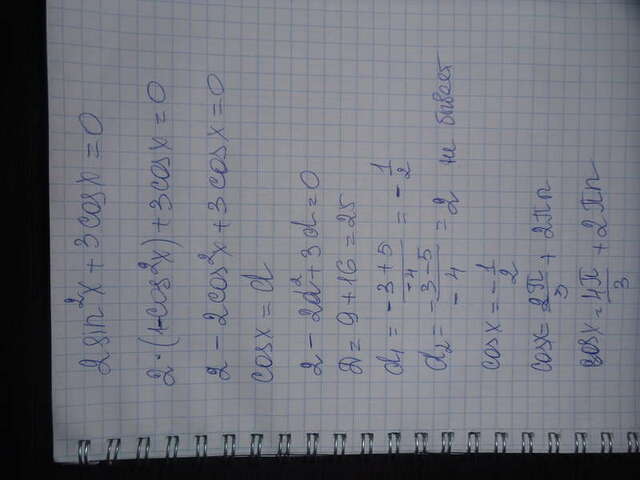 2sin²x + 3cosx = 0
2·(1-cos²x) + 3cosx = 0
2 - 2cos²x + 3cosx = 0
cosx = d
2 - 2d² + 3d = 0
D = 9 + 16 = 25
d₁ = (-3+5)/-4 = -1/2
d₂ = (-3-5)/-4 = 2 не бывает
cosx = -1/2
cosx = 2π/3 + 2πn
cosx = 4π/3 + 2πn